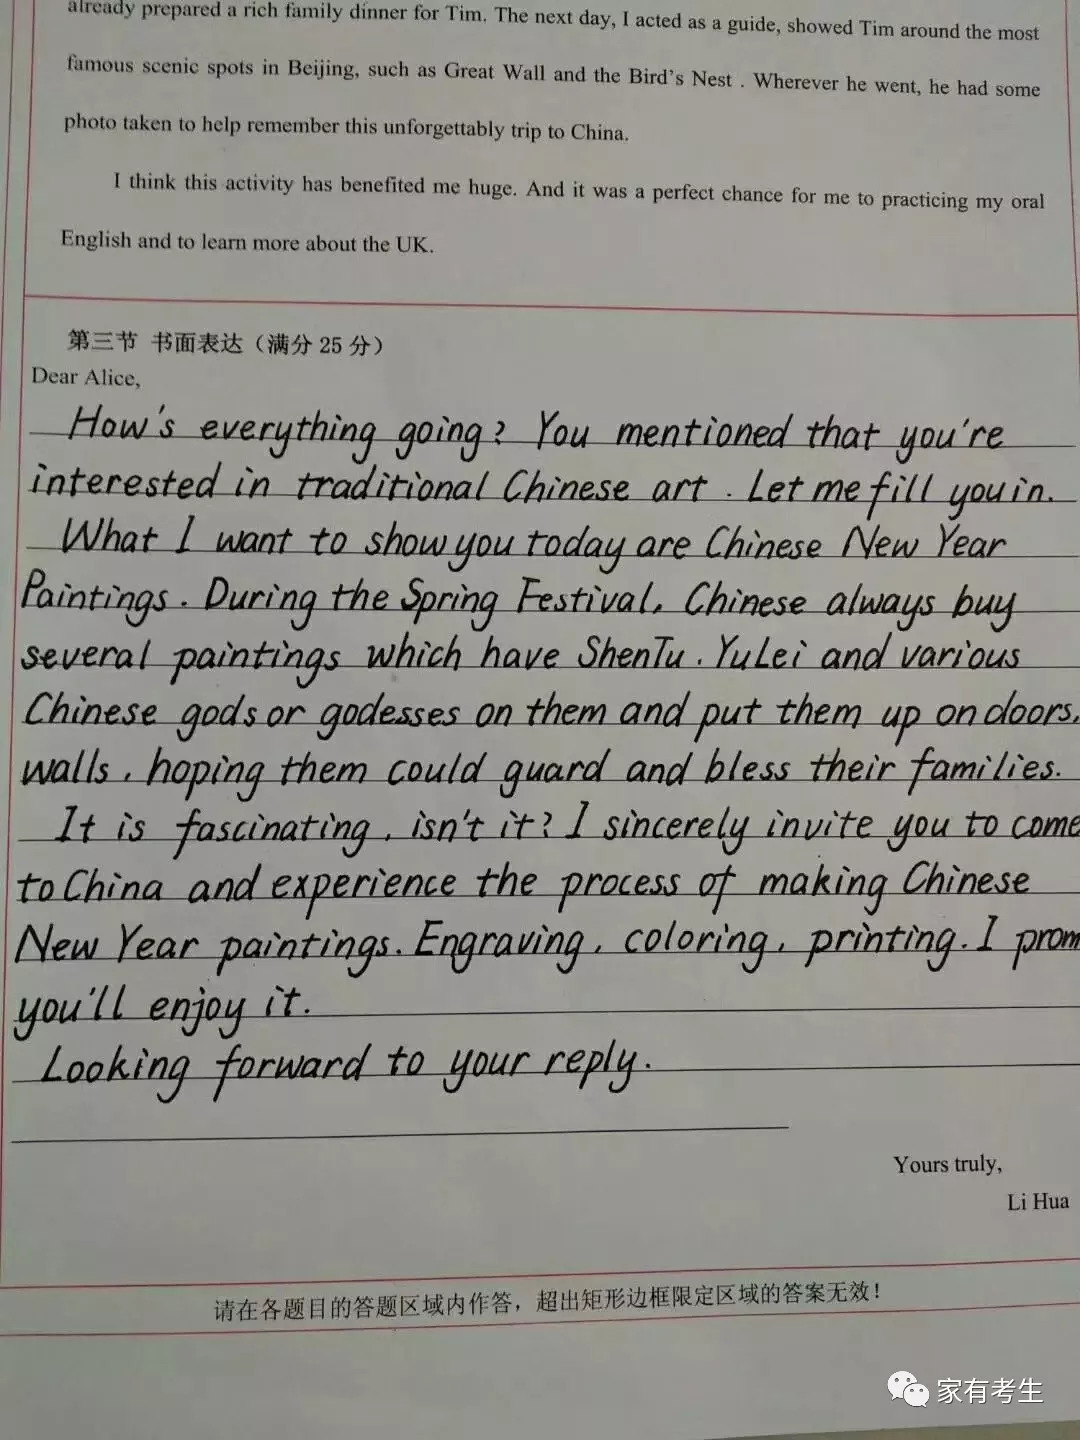 already prepared a rich family dinner for Tim. The next day, I acted as a guide, showed Tim around the most
famous scenic spots in Beijing, such as Great Wall and the Bird's Nest . Wherever he went, he had some
photo taken to help remember this unforgettably trip to China.
I think this activity has benefited me huge. And it was a perfect chance for me to practicing my oral
English and to learn more about the UK.
第三节 书面表达（满分 25 分）
Dear Alice,
How's everything going? You mentioned that you're
interested in traditional Chinese art . Let me fill you in.
What I want to show you today are Chinese New Year
Paintings. During the Spring Festival, Chinese always buy
several paintings which have ShenTu, YuLei and various
Chinese gods or godesses on them and put them up on doors,
walls, hoping them could guard and bless their families.
It is fascinating, isn't it? I sincerely invite you to come
to China and experience the process of making Chinese
New Year paintings. Engraving, coloring, printing. I prom
you'll enjoy it.
Looking forward to your reply.
Yours truly,
Li Hua
请在各题目的答题区域内作答，超出矩形边框限定区域的答案无效！
家有考生